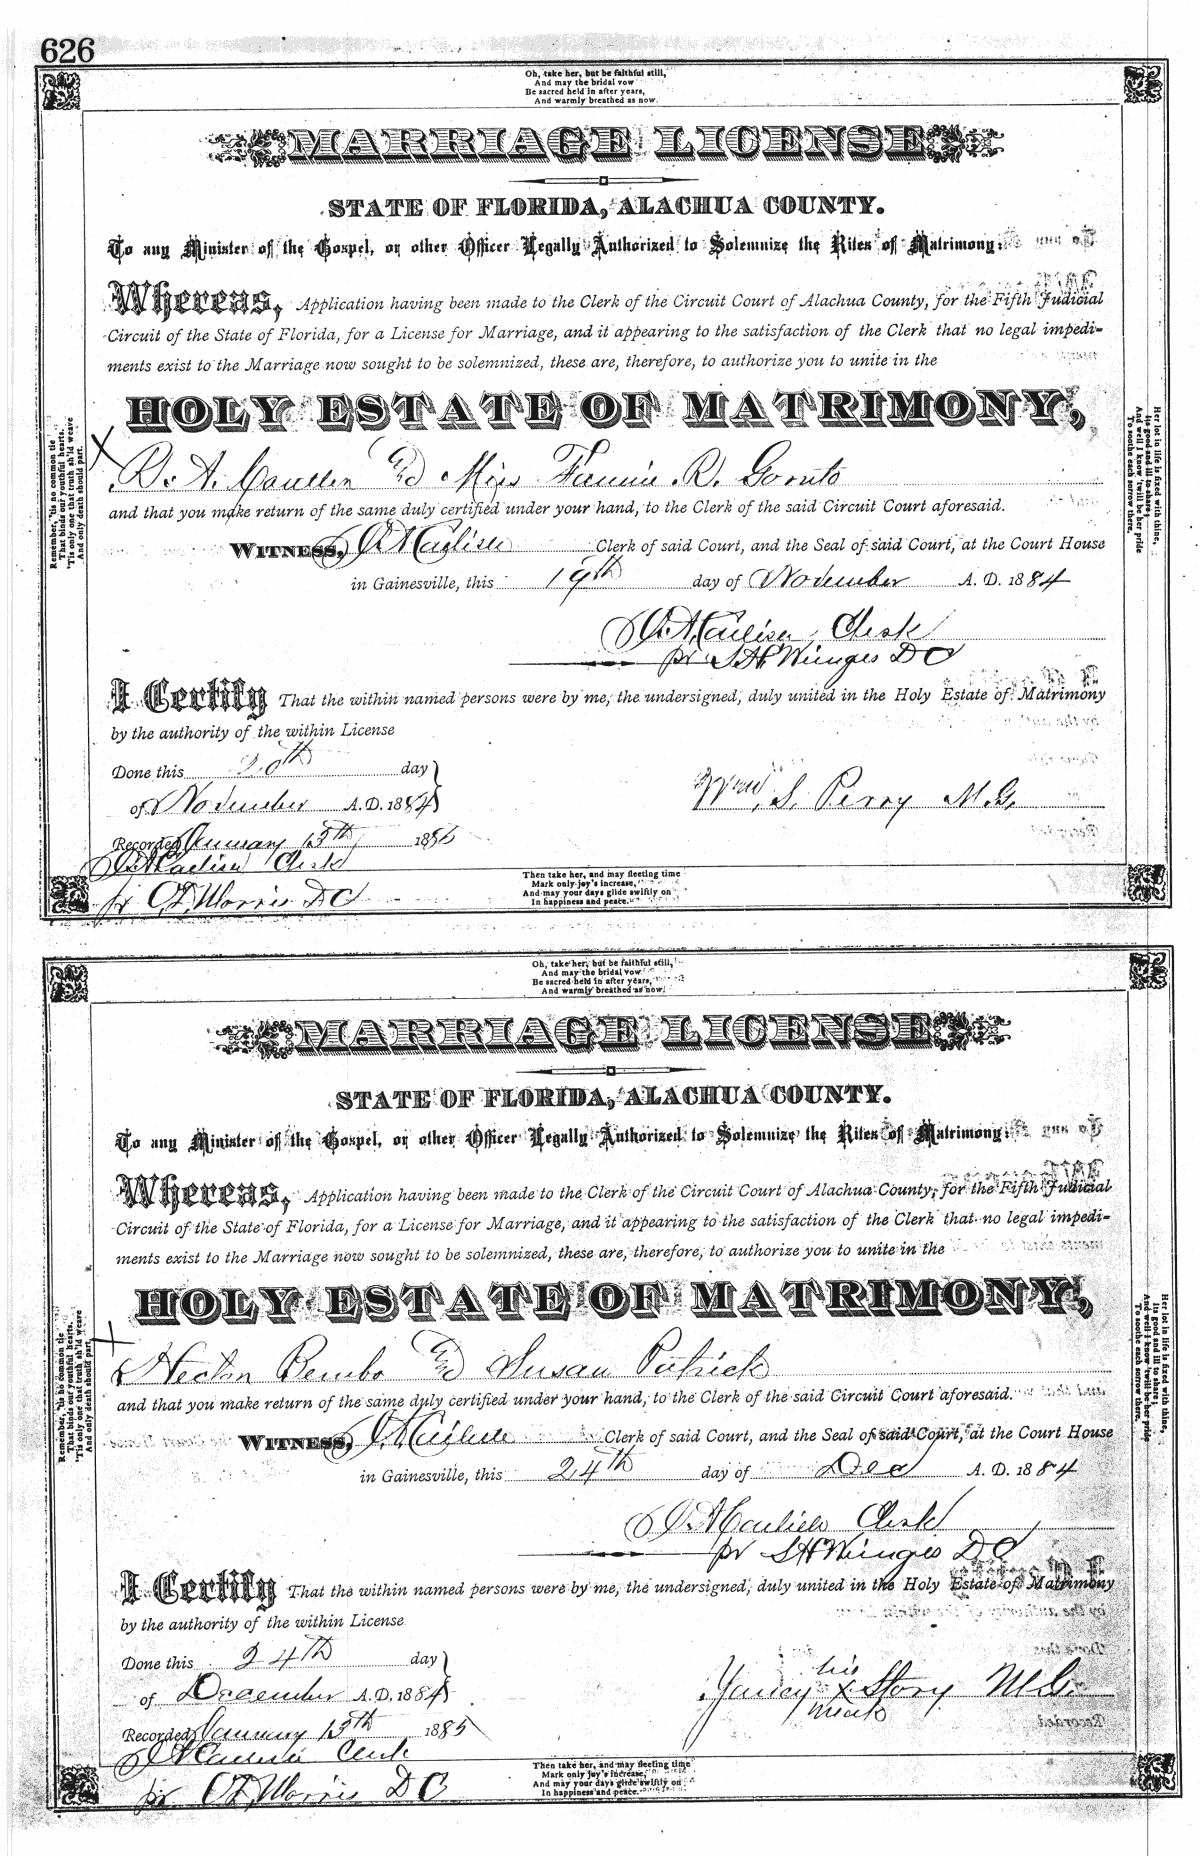 626
Oh, take her, but be faithful still,
And may the bridal vow
Be sacred held in after years,
And warmly breathed as now.
MARRIAGE LICENSE
STATE OF FLORIDA, ALACHUA COUNTY.
To any Minister of the Gospel, or other Officer Legally Authorized to Solemnize the Rites of Matrimony:
Whereas, Application having been made to the Clerk of the Circuit Court of Alachua County, for the Fifth Judicial
Circuit of the State of Florida, for a License for Marriage, and it appearing to the satisfaction of the Clerk that no legal impedi-
ments exist to the Marriage now sought to be solemnized, these are, therefore, to authorize you to unite in the
HOLY ESTATE OF MATRIMONY,
Remember, 'tis no common tie
That binds our youthful hearts;
'Tis only one that truth sh'ld weave
And only death should part.
Her lot in life is fixed with thine,
Its good and ill to share;
And well I know 'twill be her pride
To soothe each sorrow there.
X R. A. & Miss Fannie R.
and that you make return of the same duly certified under your hand, to the Clerk of the said Circuit Court aforesaid.
WITNESS, J. A. Carlisle Clerk of said Court, and the Seal of said Court, at the Court House
in Gainesville, this 19th day of November A. D. 1884
J. A. Carlisle, Clerk
pr S H Wienges D C
I Certify That the within named persons were by me, the undersigned, duly united in the Holy Estate of Matrimony
by the authority of the within License
Done this 20th day
of November A. D. 1884
Wm. S. Perry M. G.
Recorded January 13th 1885
J A Carlisle Clerk
pr C F Morris D C
Then take her, and may fleeting time
Mark only joy's increase,
And may your days glide swiftly on
In happiness and peace.
Oh, take her, but be faithful still,
And may the bridal vow
Be sacred held in after years,
And warmly breathed as now.
MARRIAGE LICENSE
STATE OF FLORIDA, ALACHUA COUNTY.
To any Minister of the Gospel, or other Officer Legally Authorized to Solemnize the Rites of Matrimony:
Whereas, Application having been made to the Clerk of the Circuit Court of Alachua County, for the Fifth Judicial
Circuit of the State of Florida, for a License for Marriage, and it appearing to the satisfaction of the Clerk that no legal impedi-
ments exist to the Marriage now sought to be solemnized, these are, therefore, to authorize you to unite in the
HOLY ESTATE OF MATRIMONY,
Remember, 'tis no common tie
That binds our youthful hearts,
'Tis only one that truth sh'ld weave
And only death should part.
Her lot in life is fixed with thine,
Its good and ill to share;
And well I know 'twill be her pride
To soothe each sorrow there.
X Hector Bembo & Susan Patrick
and that you make return of the same duly certified under your hand, to the Clerk of the said Circuit Court aforesaid.
WITNESS, J. A. Carlisle Clerk of said Court, and the Seal of said Court, at the Court House
in Gainesville, this 24th day of Dec A. D. 1884
J A Carlisle Clerk
pr S H Wienges D C
I Certify That the within named persons were by me, the undersigned, duly united in the Holy Estate of Matrimony
by the authority of the within License
Done this 24th day
of December A. D. 1884
his
Yancey X Story M. G.
mark
Recorded January 13th 1885
J A Carlisle Clerk
pr C F Morris D C
Then take her, and may fleeting time
Mark only joy's increase,
And may your days glide swiftly on
In happiness and peace.